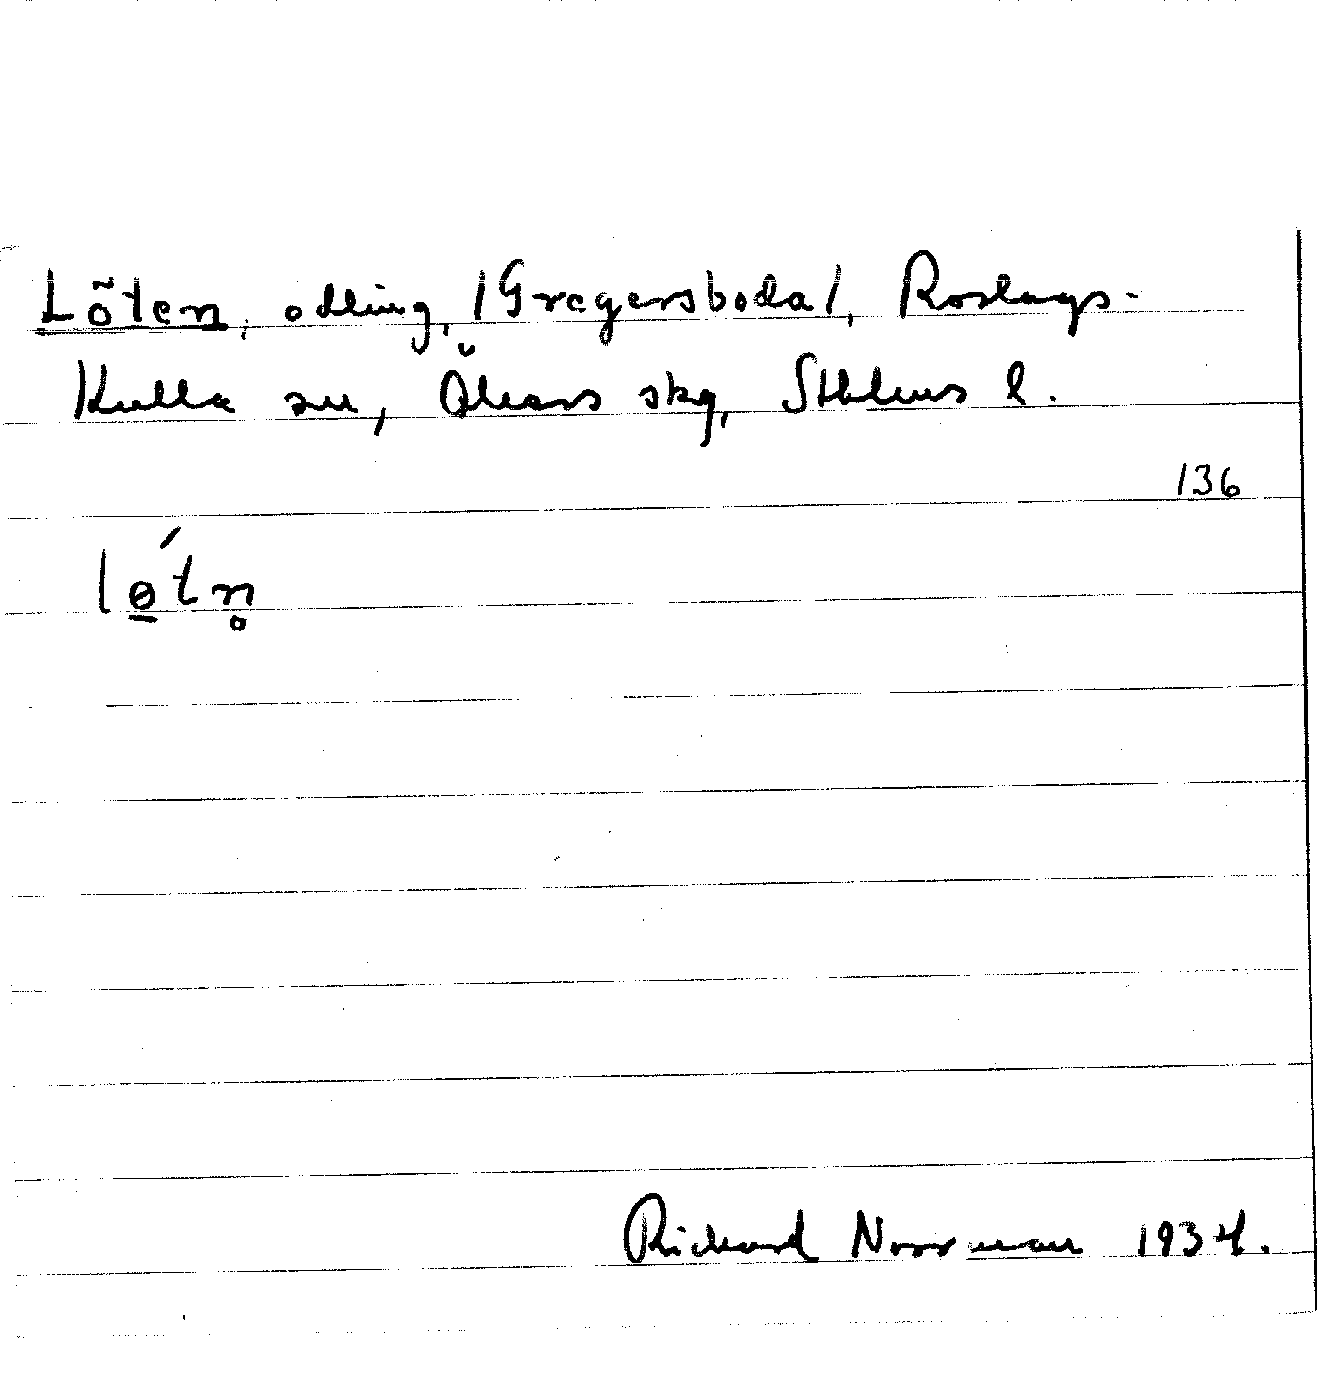 Lõten, odling, /Gregersboda/, Roslags-
Kulla sn, Åkers skg, Sthlms l.
136
lǿ̱tn̥
Richard Norrman 1934.